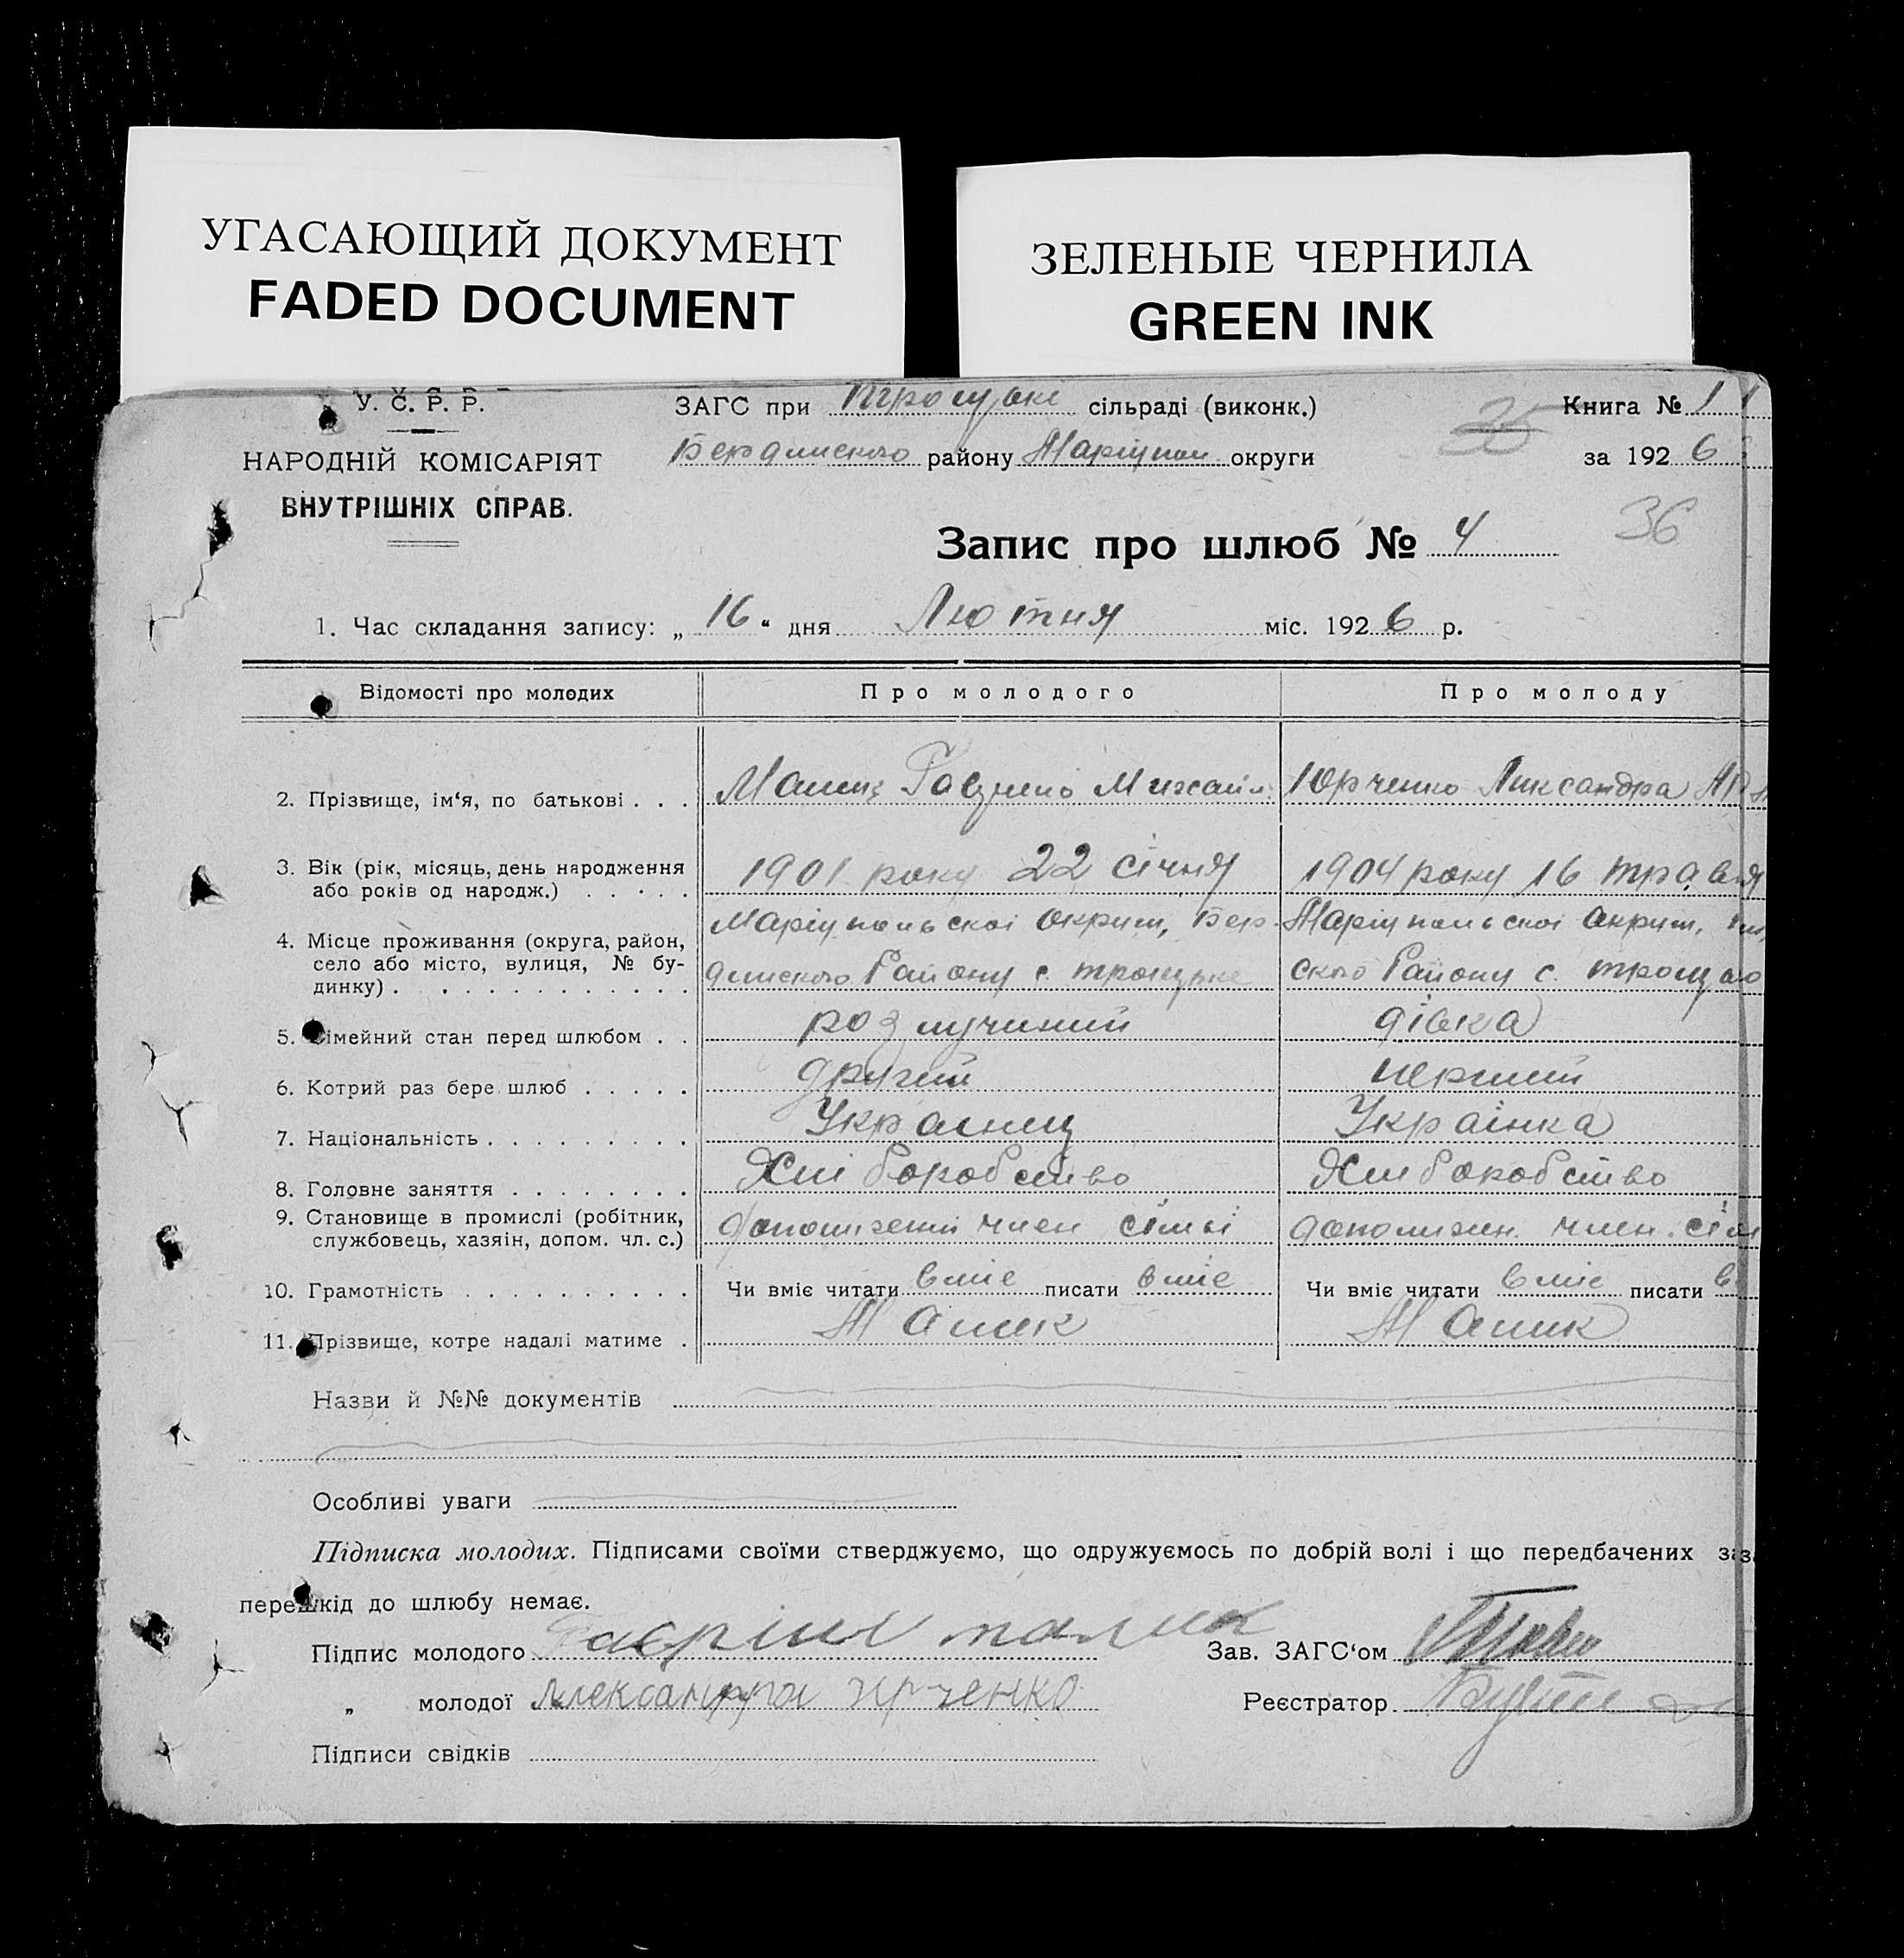 УГАСАЮЩИЙ ДОКУМЕНТ
FADED DOCUMENT
ЗЕЛЕНЫЕ ЧЕРНИЛА
GREEN INK
У. С. Р. Р.
НАРОДНІЙ КОМІСАРІЯТ
ВНУТРІШНІХ СПРАВ.
ЗАГС при сільраді (виконк.)
району Маріупол округи
35
Книга № 1
за 1926
36
Запис про шлюб № 4
1. Час складання запису: „ 16 “ дня Лютня міс. 1926 р.
Відомості про молодих Про молодого Про молоду
2. Прізвище, ім‘я, по батькові . . . Михайл. Юрченко Лиександра
3. Вік (рік, місяць, день народження
або років од народж.) . . . . . 1901 року 22 січня 1904 року 16 травня
4. Місце проживання (округа, район, Маріупольскоі округи, Бер- Маріупольскоі округи,
село або місто, вулиця, № бу-
динку) . . . . . . . . . . . . Району с. ского Району с.
5. Сімейний стан перед шлюбом . . розлучиний дівка
6. Котрий раз бере шлюб . . . . . другий перший
7. Національність . . . . . . . . . Украінец Украінка
8. Головне заняття . . . . . . . . Хліборобство Хлиборобство
9. Становище в промислі (робітник,
службовець, хазяін, допом. чл. с.) член сімьі допомижн. член.
10. Грамотність . . . . . . . . . . Чи вміє читати вміє писати вміє Чи вміє читати вміє писати
11. Прізвище, котре надалі матиме . Малик Малик
Назви й №№ документів
Особливі уваги
Підписка молодих. Підписами своїми стверджуємо, що одружуємось по добрій волі і що передбачених
перешкід до шлюбу немає.
Підпис молодого Гавріил малик Зав. ЗАГС‘ом
„ молодої Александра Юрченко Реєстратор
Підписи свідків